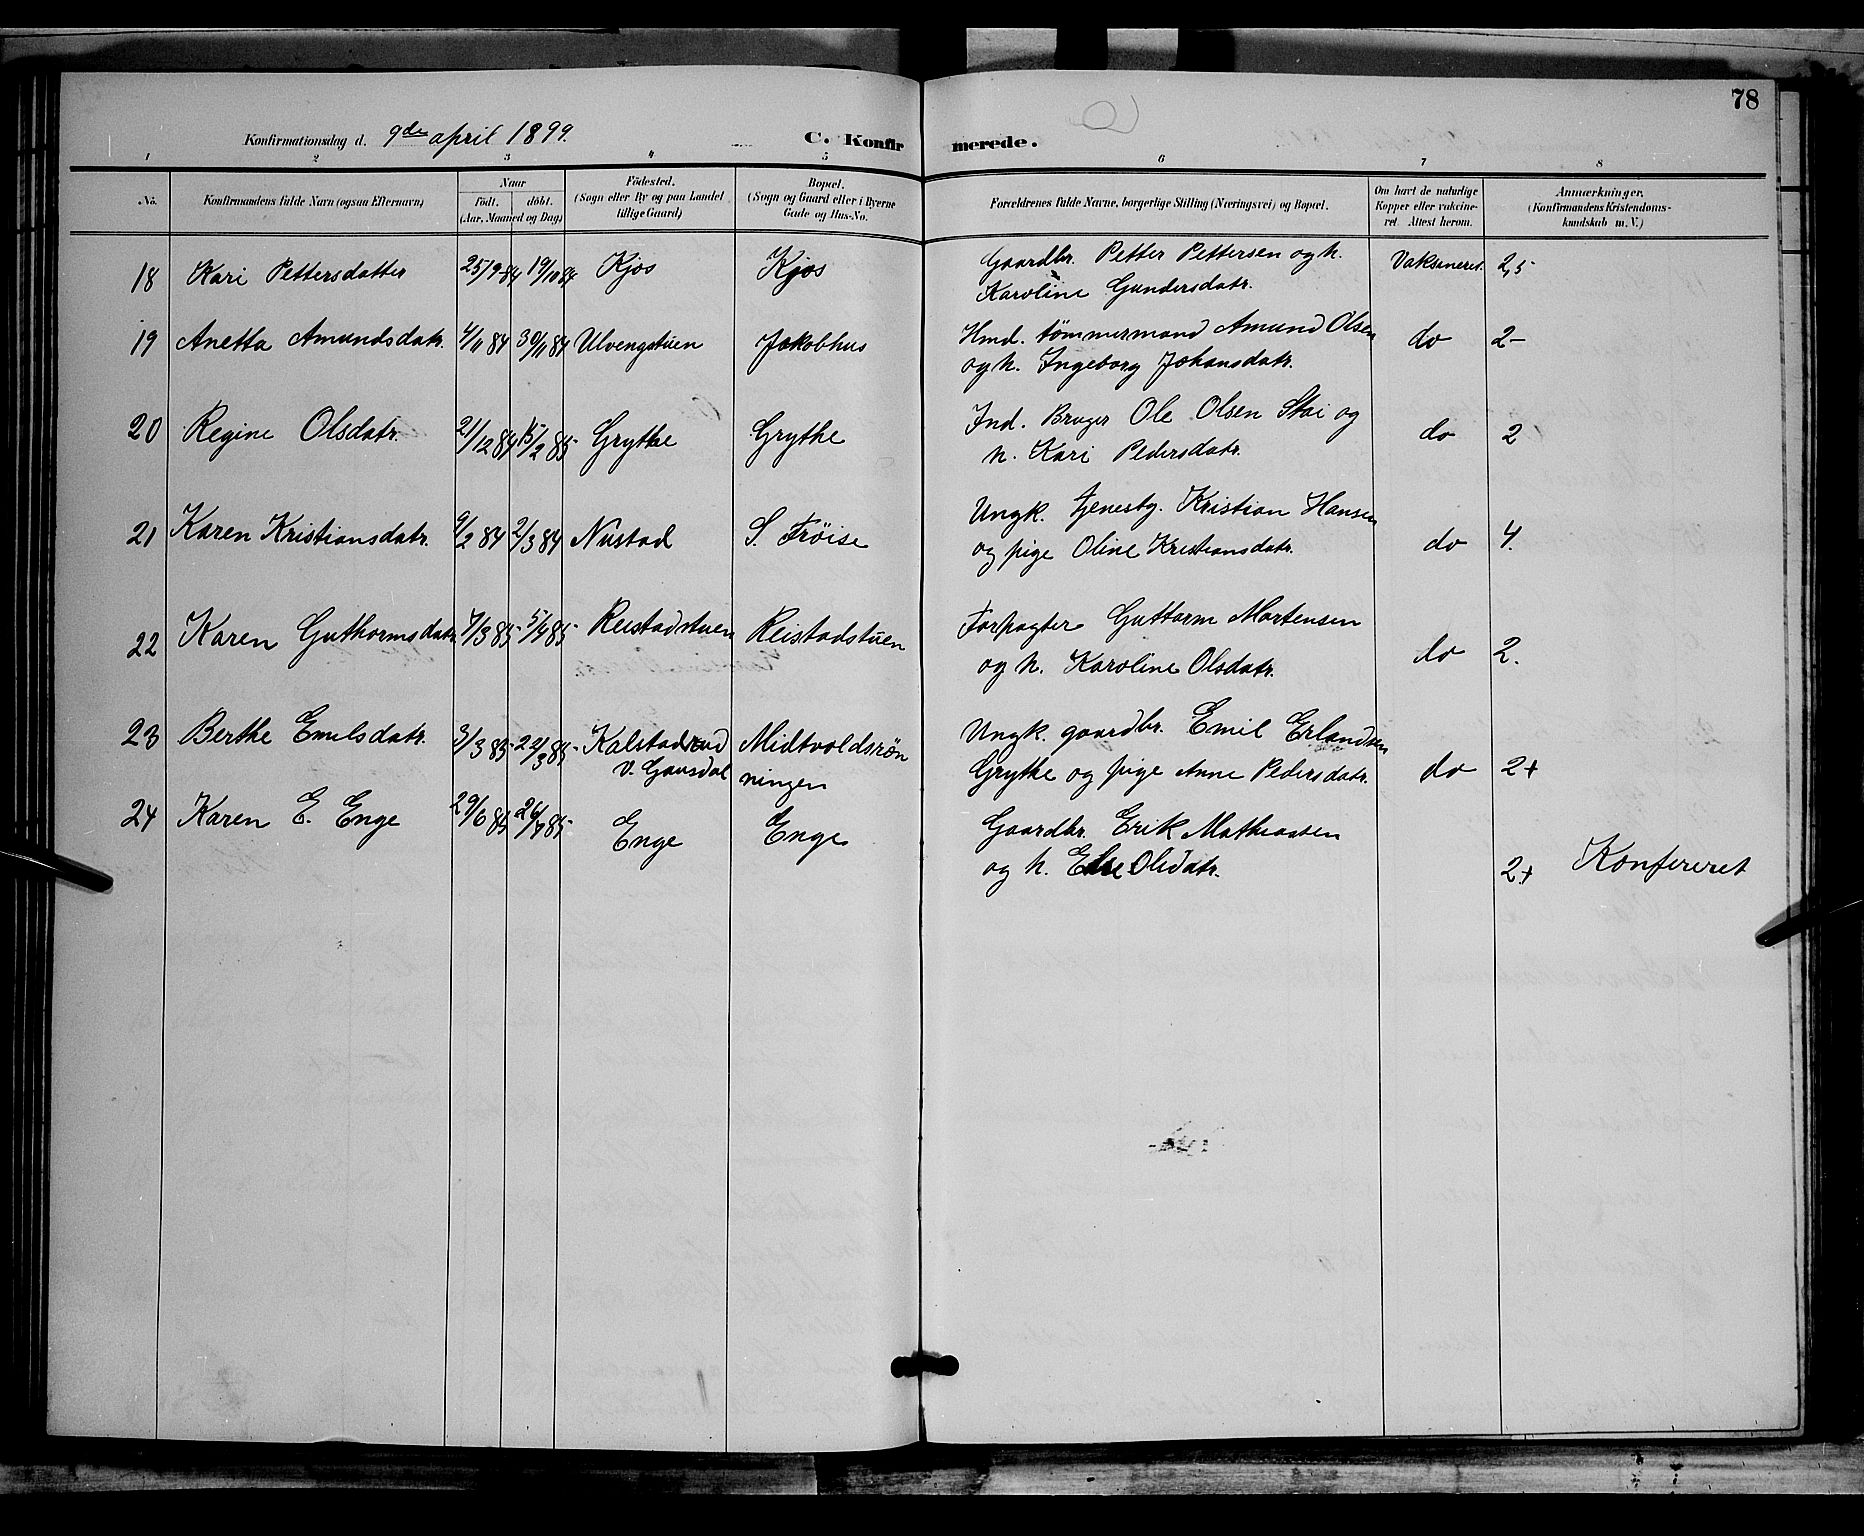 78
Konfirmationsdag d. 9de april 1899.
C. Konfirmerede.
1 2 3 4 5 6 7 8
No.
Konfirmandens fulde Navn (ogsaa Efternavn)
Naar
födt. döbt.
(Aar, Maaned og Dag)
Födested.
(Sogn eller By og paa Landet
tillige Gaard)
Bopæl.
(Sogn og Gaard eller i Byerne
Gade og Hus-No.
Forældrenes fulde Navne, borgerlige Stilling (Næringsvei) og Bopæl.
Om havt de naturlige
Kopper eller vakcine-
ret Attest herom.
Anmærkninger.
(Konfirmandens Kristendoms-
kundskab m. V.)
18 Kari Pettersdatter 25/9 84 19/10 84 Kjos Kjos Gaardbr. Petter Pettersen og h. Vaksineret. 2,5
Karoline Gundersdatr.
19 Anetta Amundsdatr. 4/11 84 30/11 84 Ulvengstuen Jakobhus Hmd. tømmermand Amund Olsen do 2-
og h. Ingeborg Johansdatr.
20 Regine Olsdatr. 21/12 84 15/2 85 Grythe Grythe Ind. Bruger Ole Olsen Stai og do 2
h. Kari Pedersdatr.
21 Karen Kristiansdatr. 9/2 84 2/3 84 Nustad S. Frøise Ungk. tjenestg. Kristian Hansen
og pige Oline Kristiansdatr. do 4.
22 Karen Guthormsdatr 7/3 85 5/4 85 Reistadstuen Reistadstuen Forpagter Guttorm Mortensen
og h. Karoline Olsdatr. do 2.
23 Berthe Emilsdatr. 3/3 85 22/3 85 Kalstadrud Midtvoldsrøn Ungk. gaardbr. Emil Erlandsen
V. Gausdal ningen Grythe og pige Anne Pedersdatr. do 2+
24 Karen E. Enge 29/6 85 26/7 85 Enge Enge Gaardbr. Erik Mathiassen
og h. Else Olsdatr. 2+ Konfereret